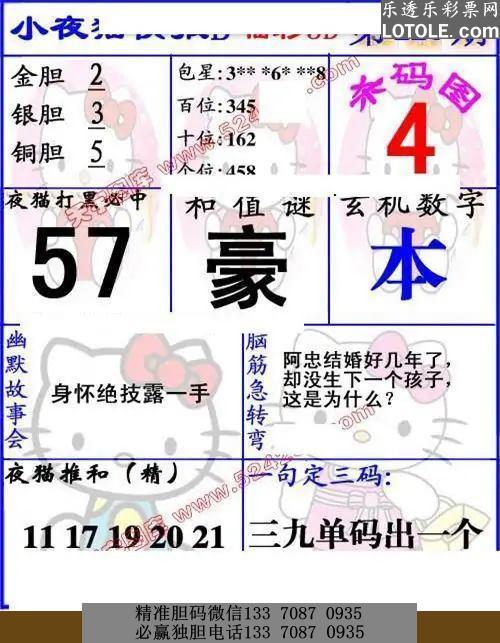 乐透乐彩票网
LOTOLE.COM
小夜猫
第
期
金胆 2
银胆 3
铜胆 5
包星:3** *6* **8
百位:345
十位:162
个位:458
杀码图
4
夜猫打黑必中
57
和值谜
豪
玄机数字
本
幽默故事会
身怀绝技露一手
脑筋急转弯
阿忠结婚好几年了,
却没生下一个孩子,
这是为什么?
夜猫推和(精)
11 17 19 20 21
一句定三码:
三九单码出一个
精准胆码微信133 7087 0935
必赢独胆电话133 7087 0935